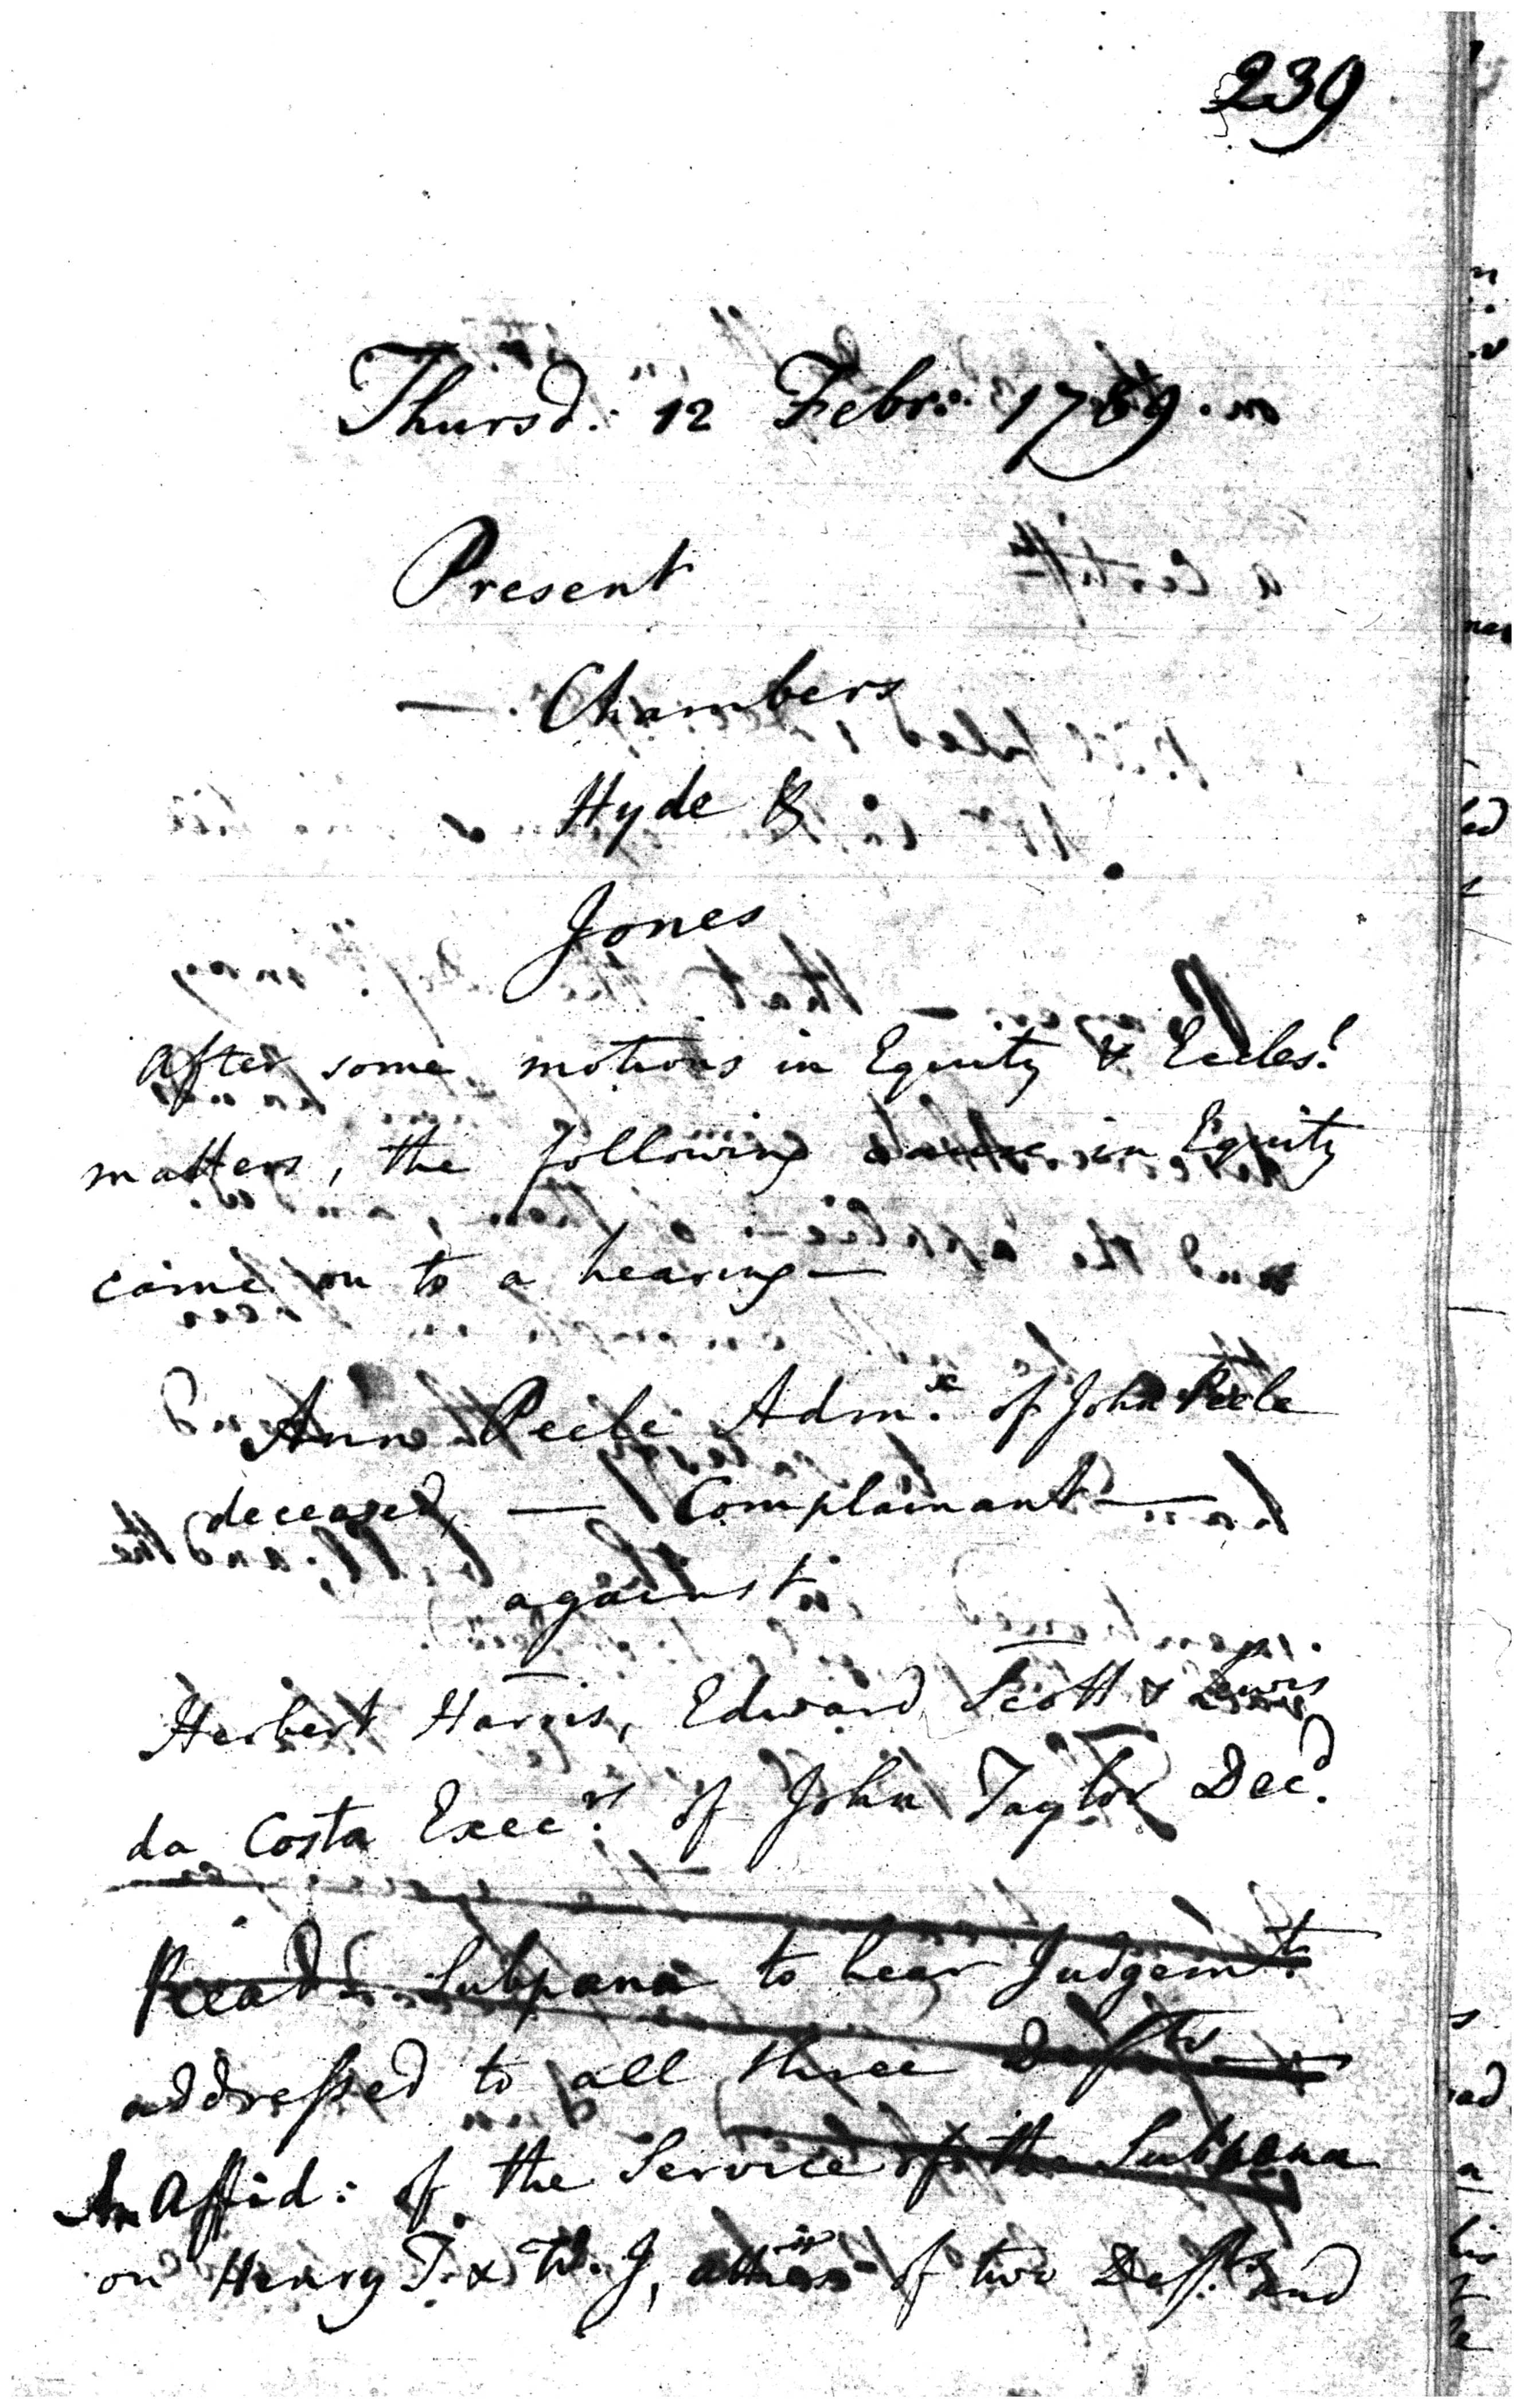 239
Thursd: 12 Febr: 1789.
Present
— Chambers
Hyde &
Jones
After some motions in Equity & Eccles!
matters, the following cause in Equity
came on to a hearing—
Ann Peele Adm.x of John Peele
deceased, — Complainant —
against
Herbert Harris, Edward Scott & Lewis
da Costa Exec.rs of John Taylor Dec.d
Read Subpana to hear Judgem.t
addressed to all three Def.ts
An Affid: of the Service of the Subpena
on Henry T. & W. J, of two Def.ts and